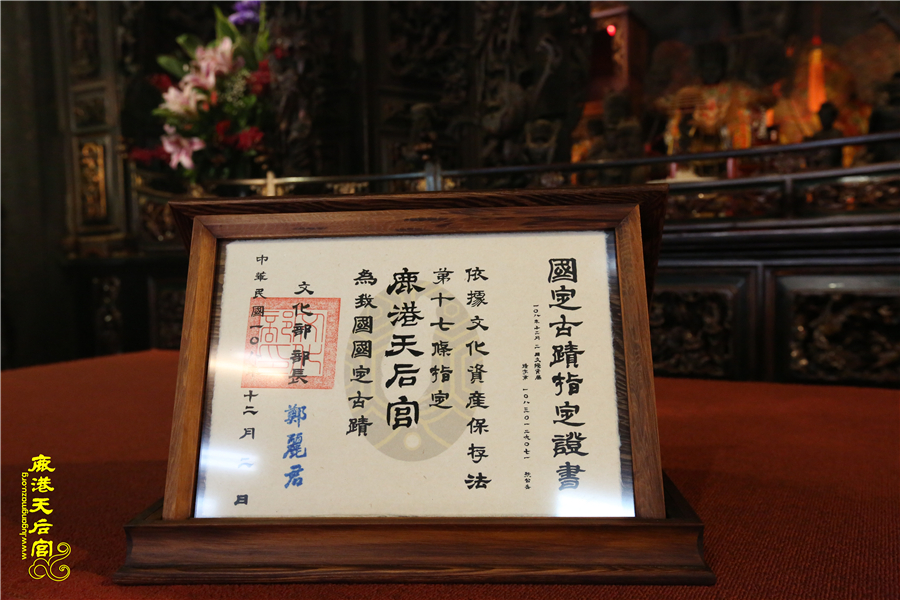 國定古蹟指定證書
依據文化資產保存法
第十七條指定
鹿港天后宮
為我國國定古蹟
文化部部長 鄭麗君
中華民國一〇
十二月二日
鹿港天后宮
www.lugangmazu.org